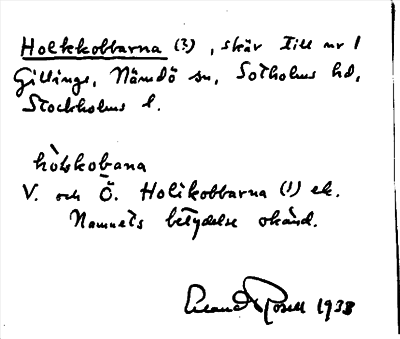 Holkkobbarna (?), skär till nr 1
Gillinge, Nämdö sn, Sotholms hd,
Stockholms l.
hò̀lskobana
V. och Ö. Holikobbarna (!) ek.
Namnets betydelse okänd.
Erland Rosell 1938